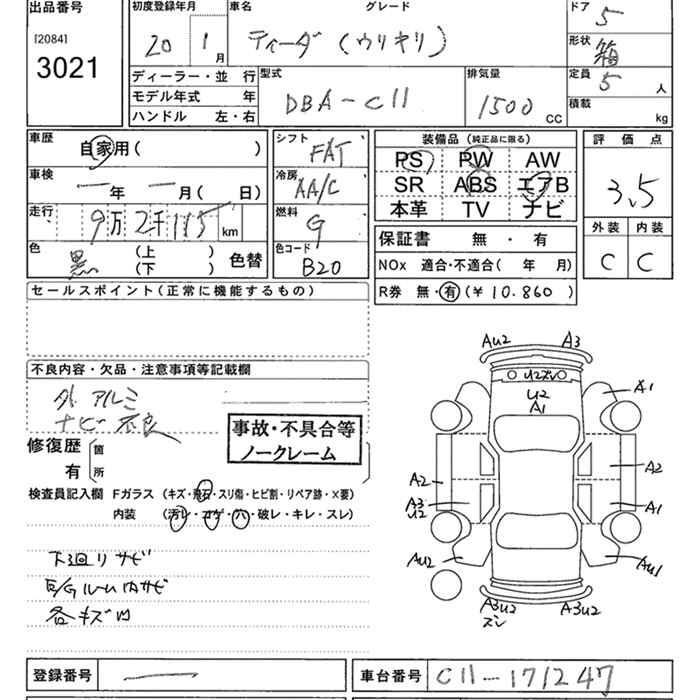 出品番号
[2084]
3021
初度登録年月 20 1月
車名 グレード
ティーダ(ウリキリ)
ドア 5
形状 箱
定員 5 人
積載 kg
ディーラー・並 行
モデル年式 年
ハンドル 左・右
型式 DBA-C11
排気量 1500 CC
車歴 自家用( )
車検 一年 一月( 日)
走行 9万 2千 115 km
色 黒 (上 )
(下 ) 色替
シフト FAT
冷房 AA/C
燃料 G
色コード B20
装備品 (純正品に限る)
PS PW AW
SR ABS エアB
本革 TV ナビ
保証書 無・有
NOx 適合・不適合( 年 月)
R券 無・有(¥ 10.860)
評価点
3.5
外装 内装
C C
セールスポイント(正常に機能するもの)
不良内容・欠品・注意事項等記載欄
外アルミ
ナビ不良
事故・不具合等
ノークレーム
修復歴
有
箇
所
検査員記入欄 Fガラス(キズ・飛石・スリ傷・ヒビ割・リペア跡・×要)
内装 (汚レ・コゲ・穴・破レ・キレ・スレ)
下廻リサビ
E/Gルーム内サビ
各キズ凹
AU2 A3
U2ズレ
U2
A1
A1
A2 A2
A3
U2
A1
AU2 AU1
A3U2
ズレ
A3U2
登録番号 ―
車台番号 C11-171247